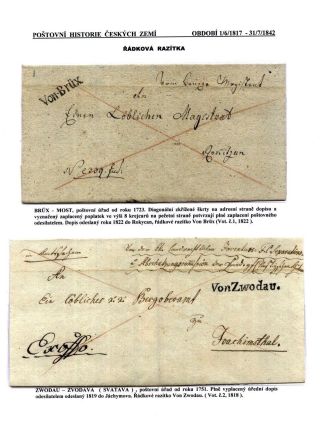 POŠTOVNÍ HISTORIE ČESKÝCH ZEMÍ OBDOBÍ 1/6/1817 - 31/7/1842
ŘÁDKOVÁ RAZÍTKA
Von Brüx
an
Einen Löblichen Magistrat
BRÜX – MOST, poštovní úřad od roku 1723. Diagonální zkřížené škrty na adresní straně dopisu a
vyznačený zaplacený poplatek ve výši 8 krejcarů na pečetní straně potvrzují plné zaplacení poštovného
odesilatelem. Dopis odeslaný roku 1822 do Rokycan, řádkové razítko Von Brüx (Vot. č.1, 1822 ).
An
Ein löbliches k: k: Bergoberamt
Von Zwodau.
zu
Exoffo
Joachimsthal.
ZWODAU – ZVODAVA ( SVATAVA ) , poštovní úřad od roku 1751. Plně vyplacený úřední dopis
odesilatelem odeslaný 1819 do Jáchymova. Řádkové razítko Von Zwodau. ( Vot. č.2, 1818 ).